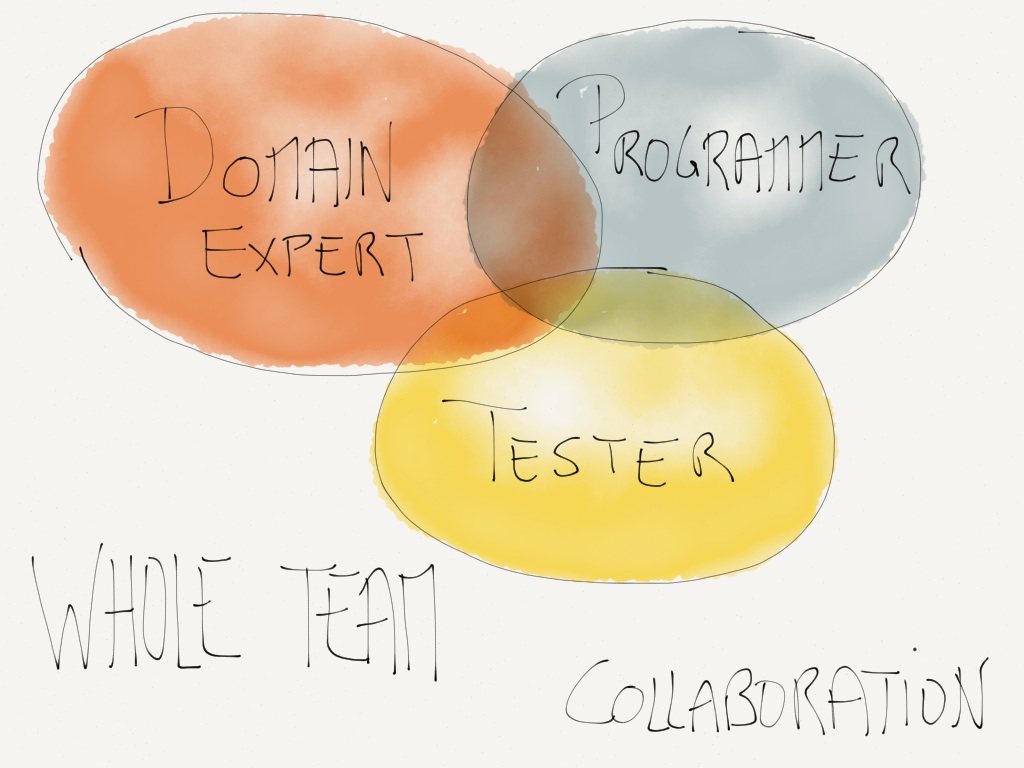 Domain
Expert
Programmer
Tester
Whole Team
Collaboration